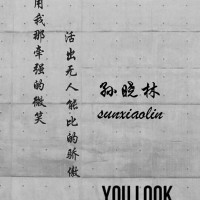 用我那牵强的微笑
活出无人能比的骄傲
孙晓林
sunxiaolin
YOU LOOK